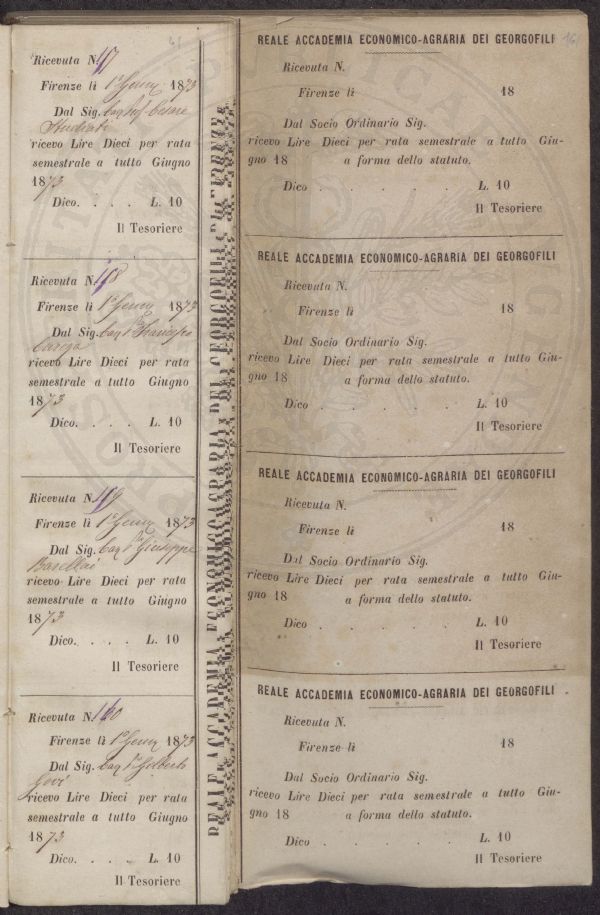 Ricevuta N.
Firenze lì 1° Genn 1873
Dal Sig. Cav Prof Cesare
Studiati
ricevo Lire Dieci per rata
semestrale a tutto Giugno
1873
Dico. . . . L. 10
Il Tesoriere
Ricevuta N.
Firenze lì 1° Genn 1873
Dal Sig. Cav Francesco
Carega
ricevo Lire Dieci per rata
semestrale a tutto Giugno
1873
Dico. . . . L. 10
Il Tesoriere
Ricevuta N.
Firenze lì 1° Genn 1873
Dal Sig. Cav Giuseppe
Barellai
ricevo Lire Dieci per rata
semestrale a tutto Giugno
1873
Dico. . . . L. 10
Il Tesoriere
Ricevuta N.
Firenze lì 1° Genn 1873
Dal Sig. Cav Gilberto
Govi
ricevo Lire Dieci per rata
semestrale a tutto Giugno
1873
Dico. . . . L. 10
Il Tesoriere
REALE ACCADEMIA ECONOMICO-AGRARIA DEI GEORGOFILI DI FIRENZE
REALE ACCADEMIA ECONOMICO-AGRARIA DEI GEORGOFILI
Ricevuta N.
Firenze lì 18
Dal Socio Ordinario Sig.
ricevo Lire Dieci per rata semestrale a tutto Giu-
gno 18 a forma dello statuto.
Dico . . . . . L. 10
Il Tesoriere
REALE ACCADEMIA ECONOMICO-AGRARIA DEI GEORGOFILI
Ricevuta N.
Firenze lì 18
Dal Socio Ordinario Sig.
ricevo Lire Dieci per rata semestrale a tutto Giu-
gno 18 a forma dello statuto.
Dico . . . . . L. 10
Il Tesoriere
REALE ACCADEMIA ECONOMICO-AGRARIA DEI GEORGOFILI
Ricevuta N.
Firenze lì 18
Dal Socio Ordinario Sig.
ricevo Lire Dieci per rata semestrale a tutto Giu-
gno 18 a forma dello statuto.
Dico . . . . . L. 10
Il Tesoriere
REALE ACCADEMIA ECONOMICO-AGRARIA DEI GEORGOFILI
Ricevuta N.
Firenze lì 18
Dal Socio Ordinario Sig.
ricevo Lire Dieci per rata semestrale a tutto Giu-
gno 18 a forma dello statuto.
Dico . . . . . L. 10
Il Tesoriere